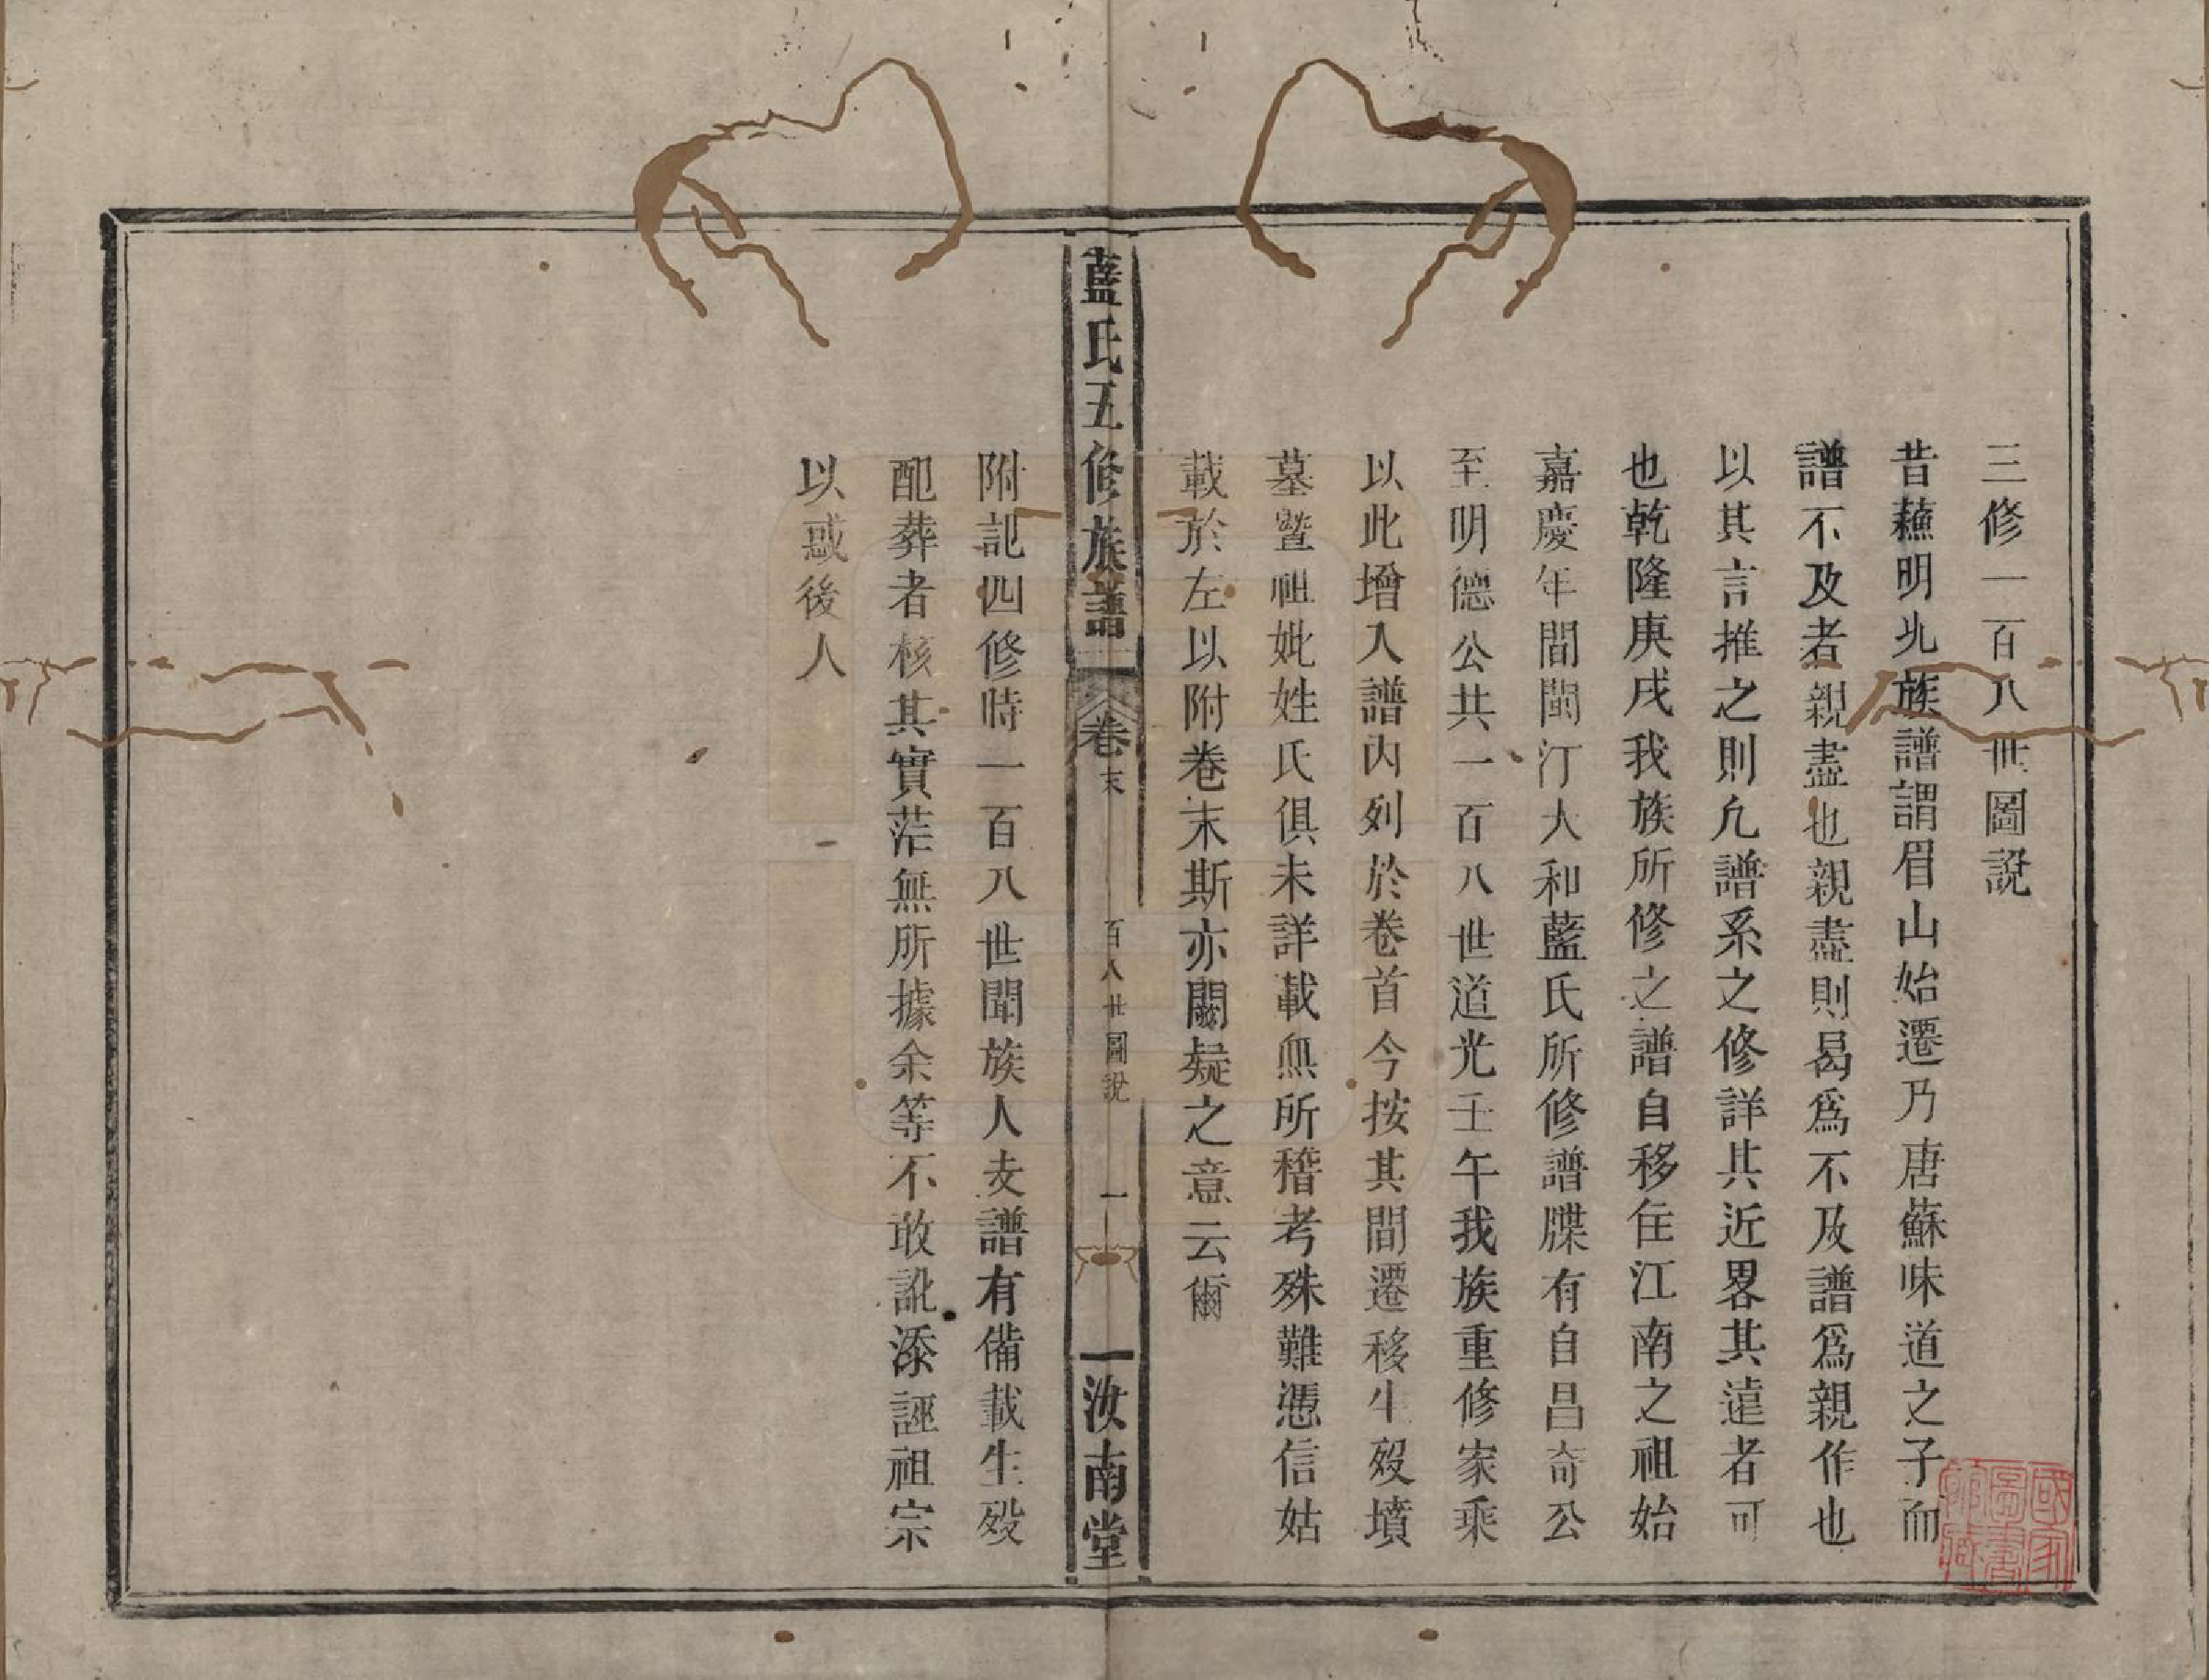 三修一百八世圖說
昔蘓明允族譜謂眉山始遷乃唐蘇味道之子而
譜不及者親盡也親盡則曷爲不及譜爲親作也
以其言推之則凢譜系之修詳其近畧其遠者可
也乾隆庚戌我族所修之譜自移住江南之祖始
嘉慶年間閩汀大和藍氏所修譜牒有自昌奇公
至明德公共一百八世道光壬午我族重修家乘
以此增入譜內列於卷首今按其間遷移生殁墳
墓暨祖妣姓氏俱未詳載無所稽考殊難憑信姑
載於左以附卷末斯亦闕疑之意云爾
藍氏五修族譜
卷末
百八世圖說
一
汝南堂
附記四修時一百八世聞族人支譜有備載生殁
配葬者核其實茫無所據余等不敢訛添誣祖宗
以惑後人
國家圖書館藏